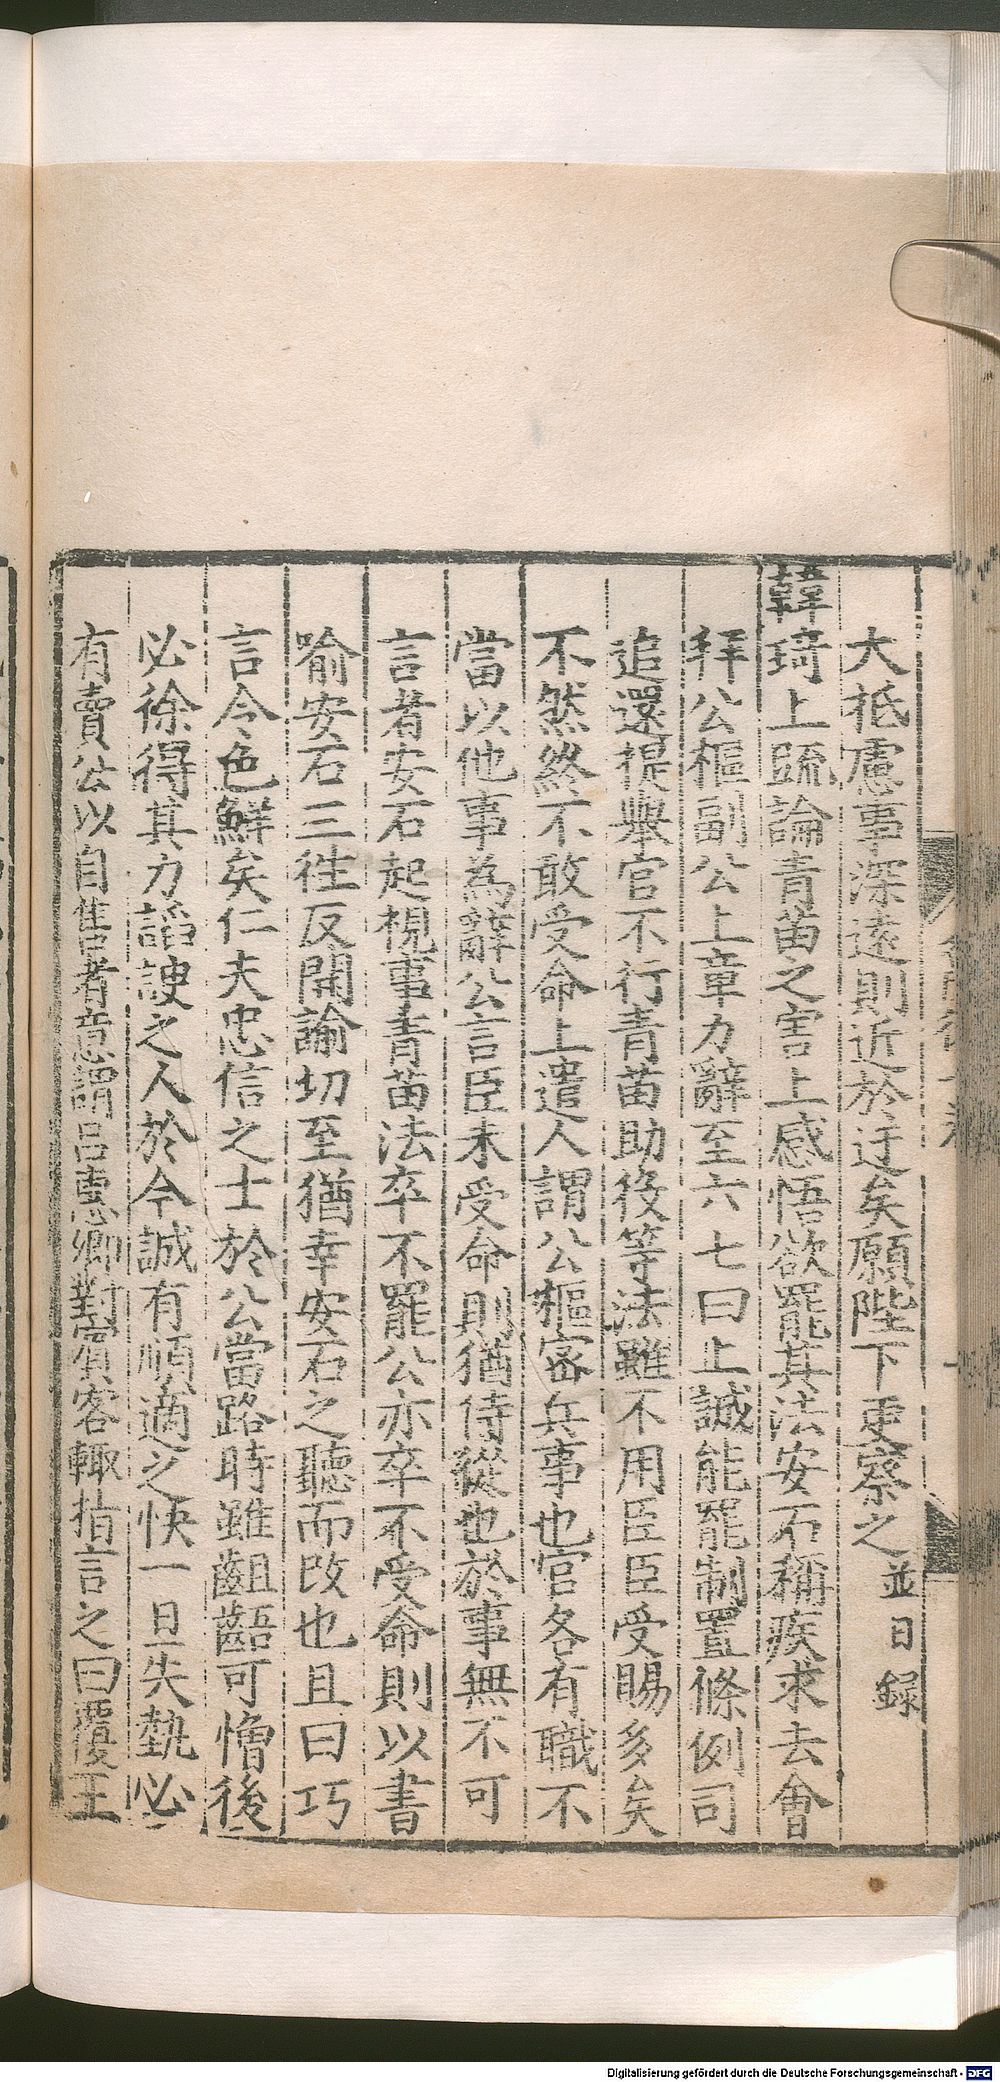 大柢慮事深遠則近於迂矣願陛下更察之並日錄
韓琦上䟽論青苗之害上感悟欲罷其法安石稱疾求去會
拜公樞副公上章力辭至六七曰上誠能罷制置條例司
追還提舉官不行青苗助役等法雖不用臣臣受賜多矣
不然終不敢受命上遣人謂公樞密兵事也官各有職不
當以他事為辭公言臣未受命則猶侍從也於事無不可
言者安石起視事青苗法卒不罷公亦卒不受命則以書
喻安石三往反開諭切至猶幸安石之聽而改也且曰巧
言令色鮮矣仁夫忠信之士於公當路時雖齟齬可憎後
必徐得其力謟諛之人於今誠有順適之快一旦失埶必
有賣公以自售者意謂呂惠卿對賓客輙指言之曰覆王
Digitalisierung gefördert durch die Deutsche Forschungsgemeinschaft - DFG